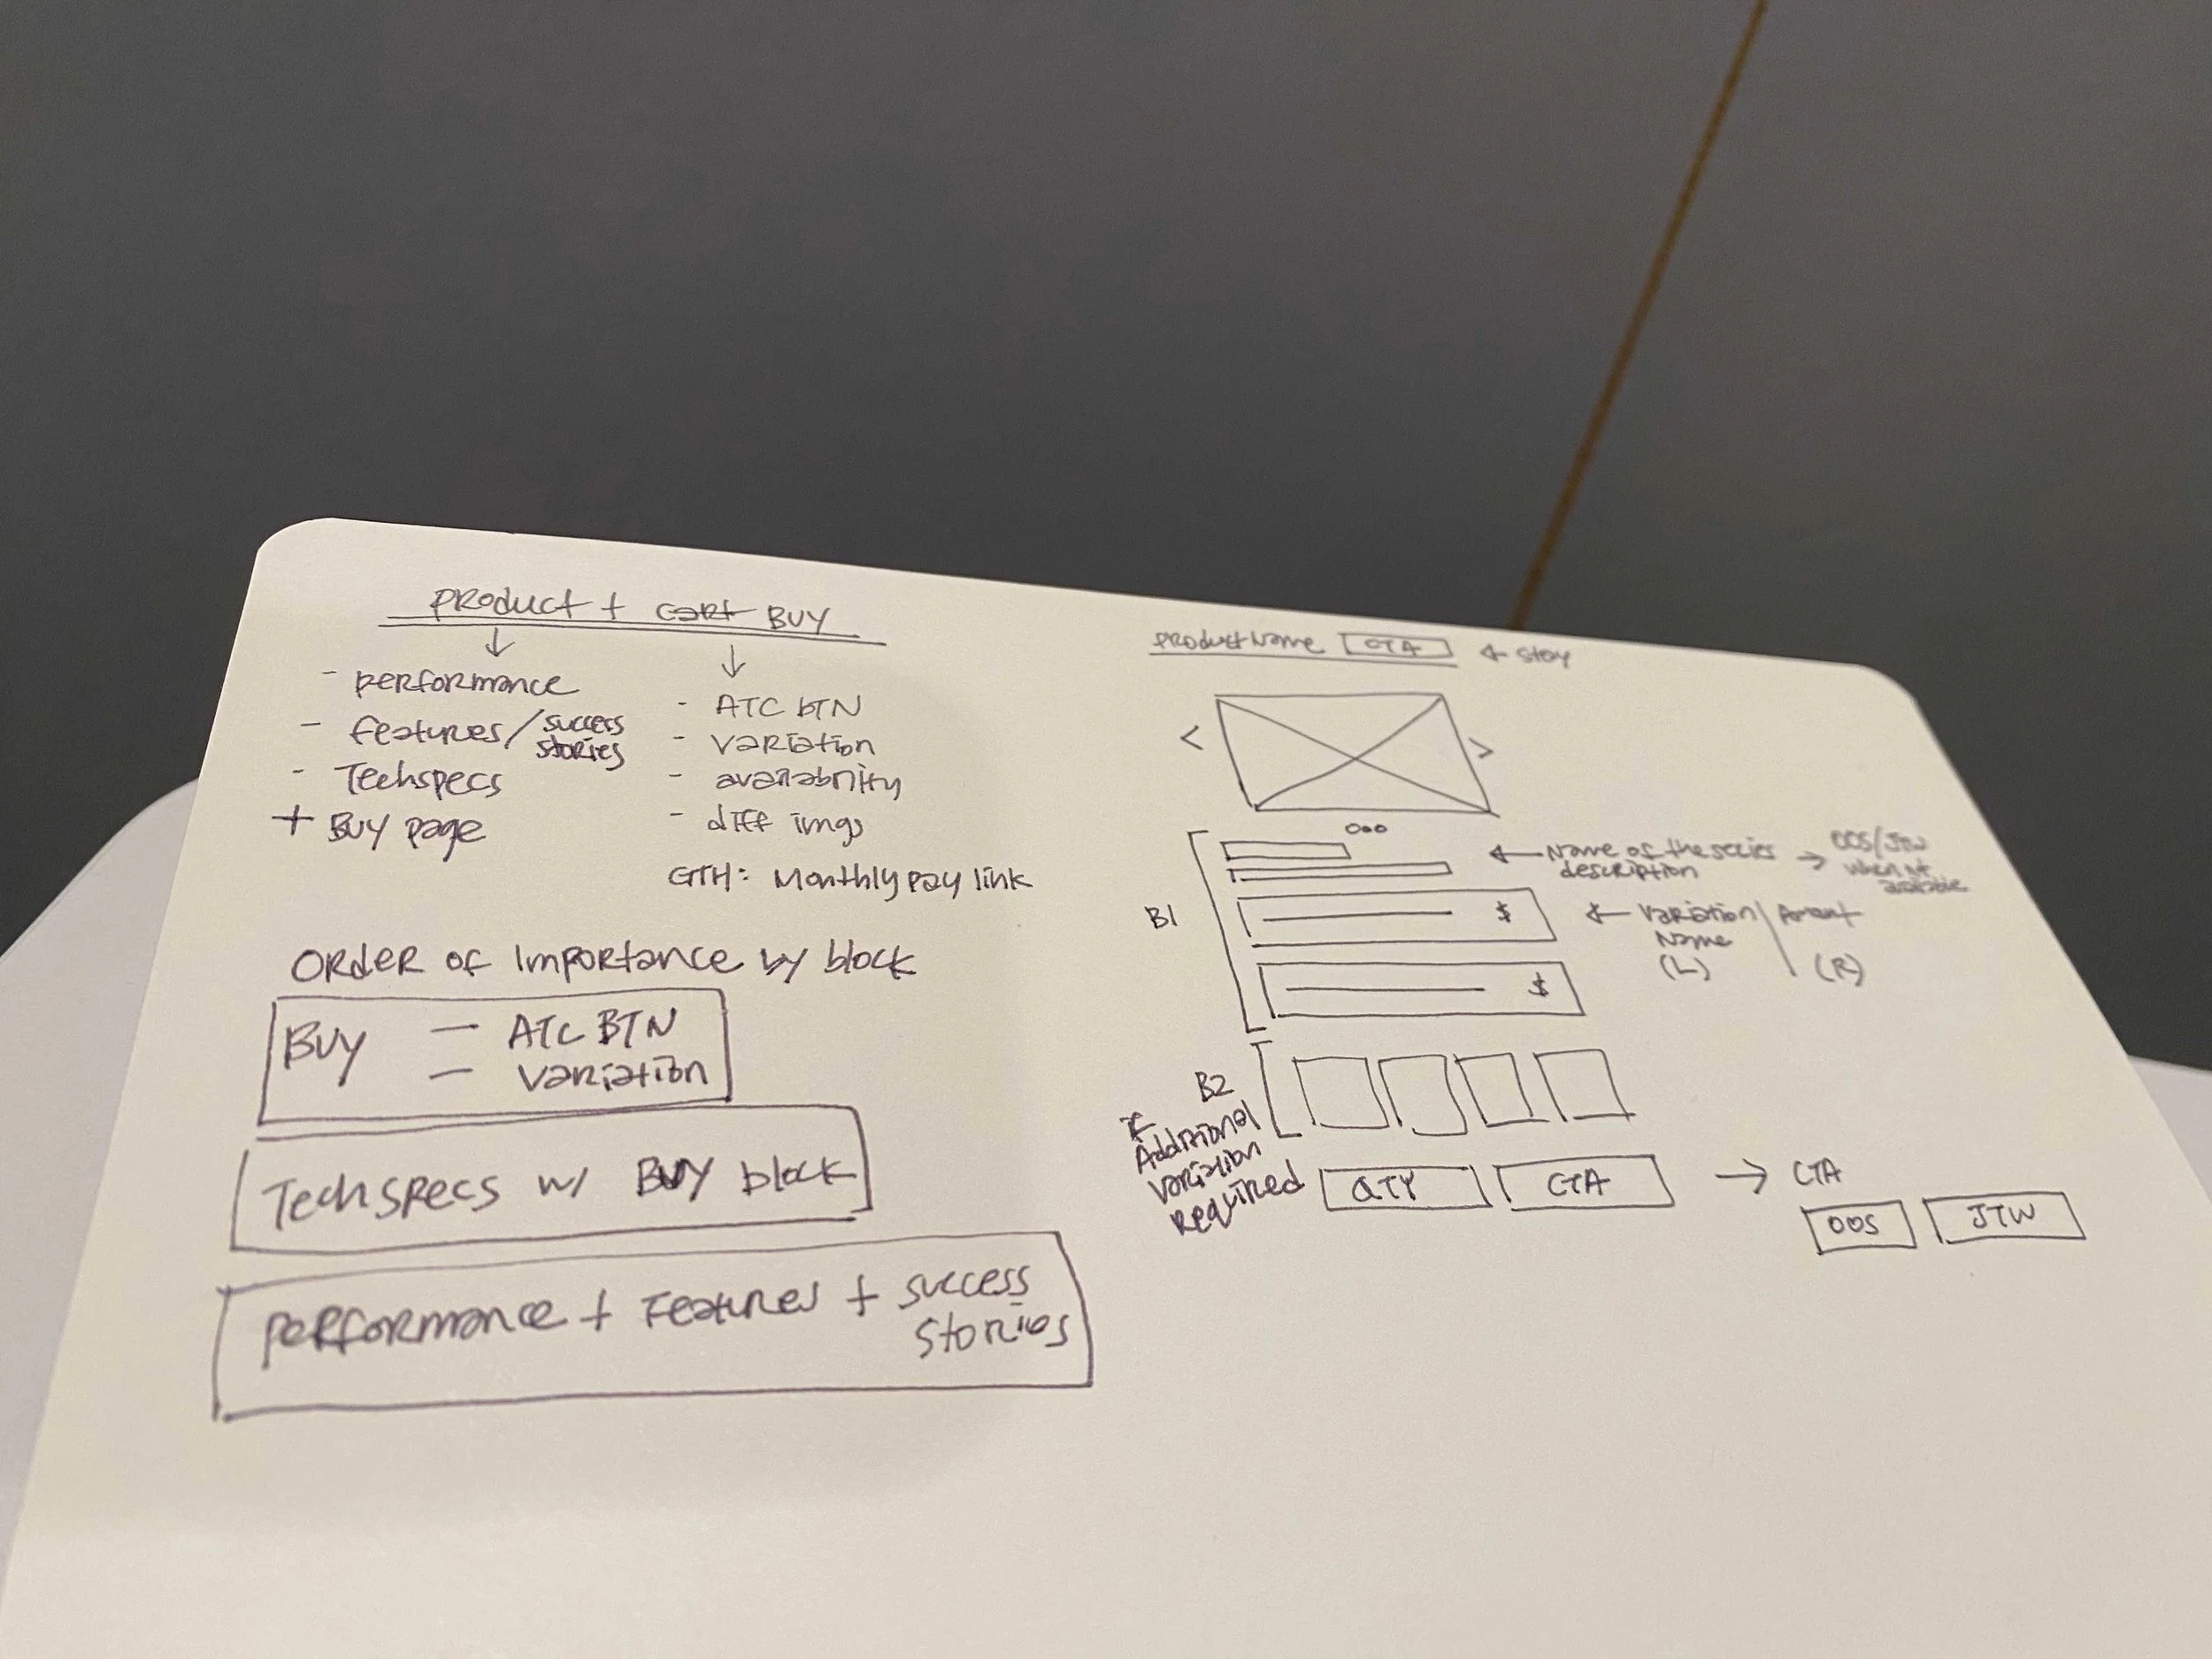 PRODUCT + cart BUY
- performance
- features/success stories
- Techspecs
+ BUY page
- ATC BTN
- variation
- availability
- diff imgs
GTH: Monthly pay link
ORDER of Importance by block
BUY - ATC BTN
- variation
Techspecs w/ BUY block
performance + Features + success
stories
Product Name CTA ← stay
< >
B1
← Name of the series → OOS/JTW
description when not
available
$ ← variation
Name
(L) (R)
$
B2
If
Additional
variation
required
QTY CTA → CTA
OOS JTW